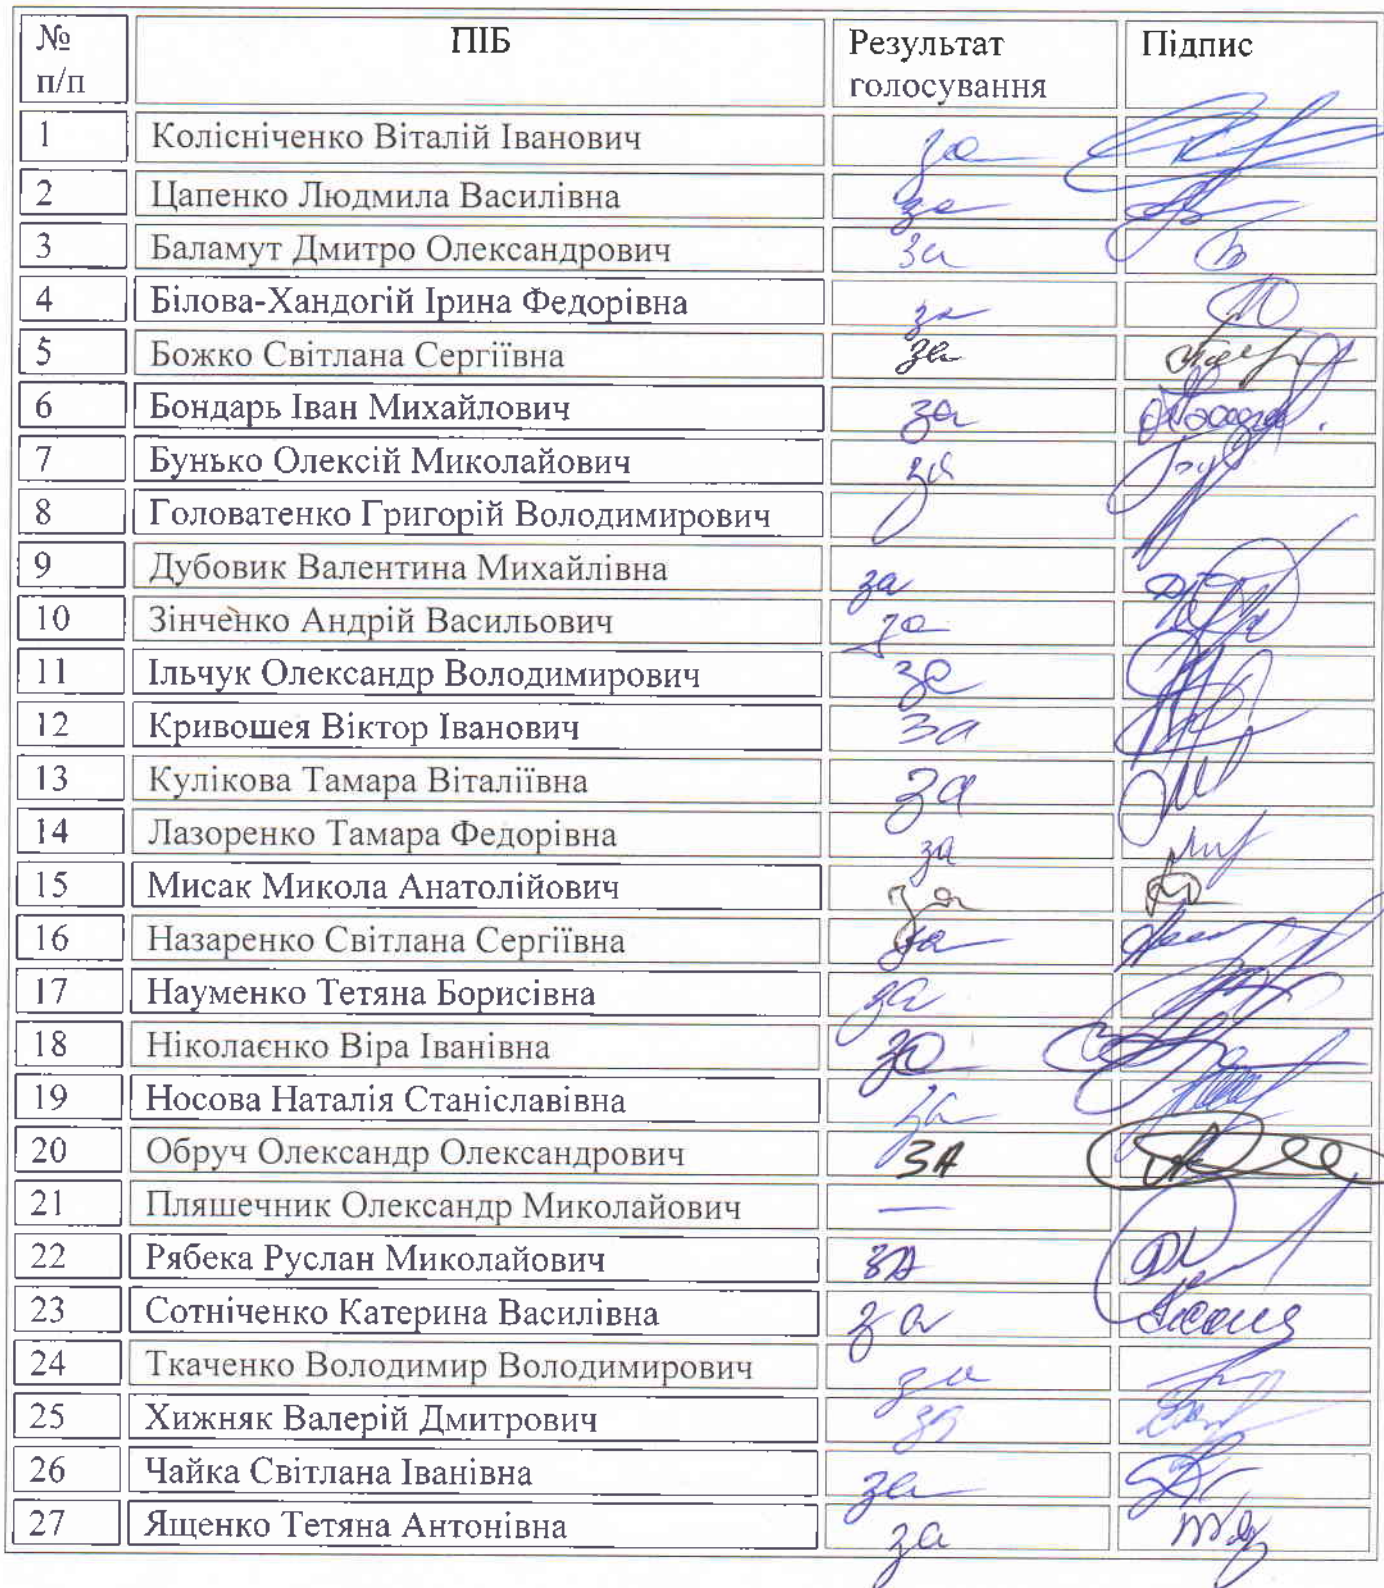 № п/п ПІБ Результат голосування Підпис
1 Колісніченко Віталій Іванович за
2 Цапенко Людмила Василівна за
3 Баламут Дмитро Олександрович за
4 Білова-Хандогій Ірина Федорівна за
5 Божко Світлана Сергіївна за
6 Бондарь Іван Михайлович за
7 Бунько Олексій Миколайович за
8 Головатенко Григорій Володимирович
9 Дубовик Валентина Михайлівна за
10 Зінченко Андрій Васильович за
11 Ільчук Олександр Володимирович за
12 Кривошея Віктор Іванович за
13 Кулікова Тамара Віталіївна за
14 Лазоренко Тамара Федорівна за
15 Мисак Микола Анатолійович за
16 Назаренко Світлана Сергіївна за
17 Науменко Тетяна Борисівна за
18 Ніколаєнко Віра Іванівна за
19 Носова Наталія Станіславівна за
20 Обруч Олександр Олександрович ЗА
21 Пляшечник Олександр Миколайович —
22 Рябека Руслан Миколайович ЗА
23 Сотніченко Катерина Василівна за
24 Ткаченко Володимир Володимирович за
25 Хижняк Валерій Дмитрович за
26 Чайка Світлана Іванівна за
27 Ященко Тетяна Антонівна за